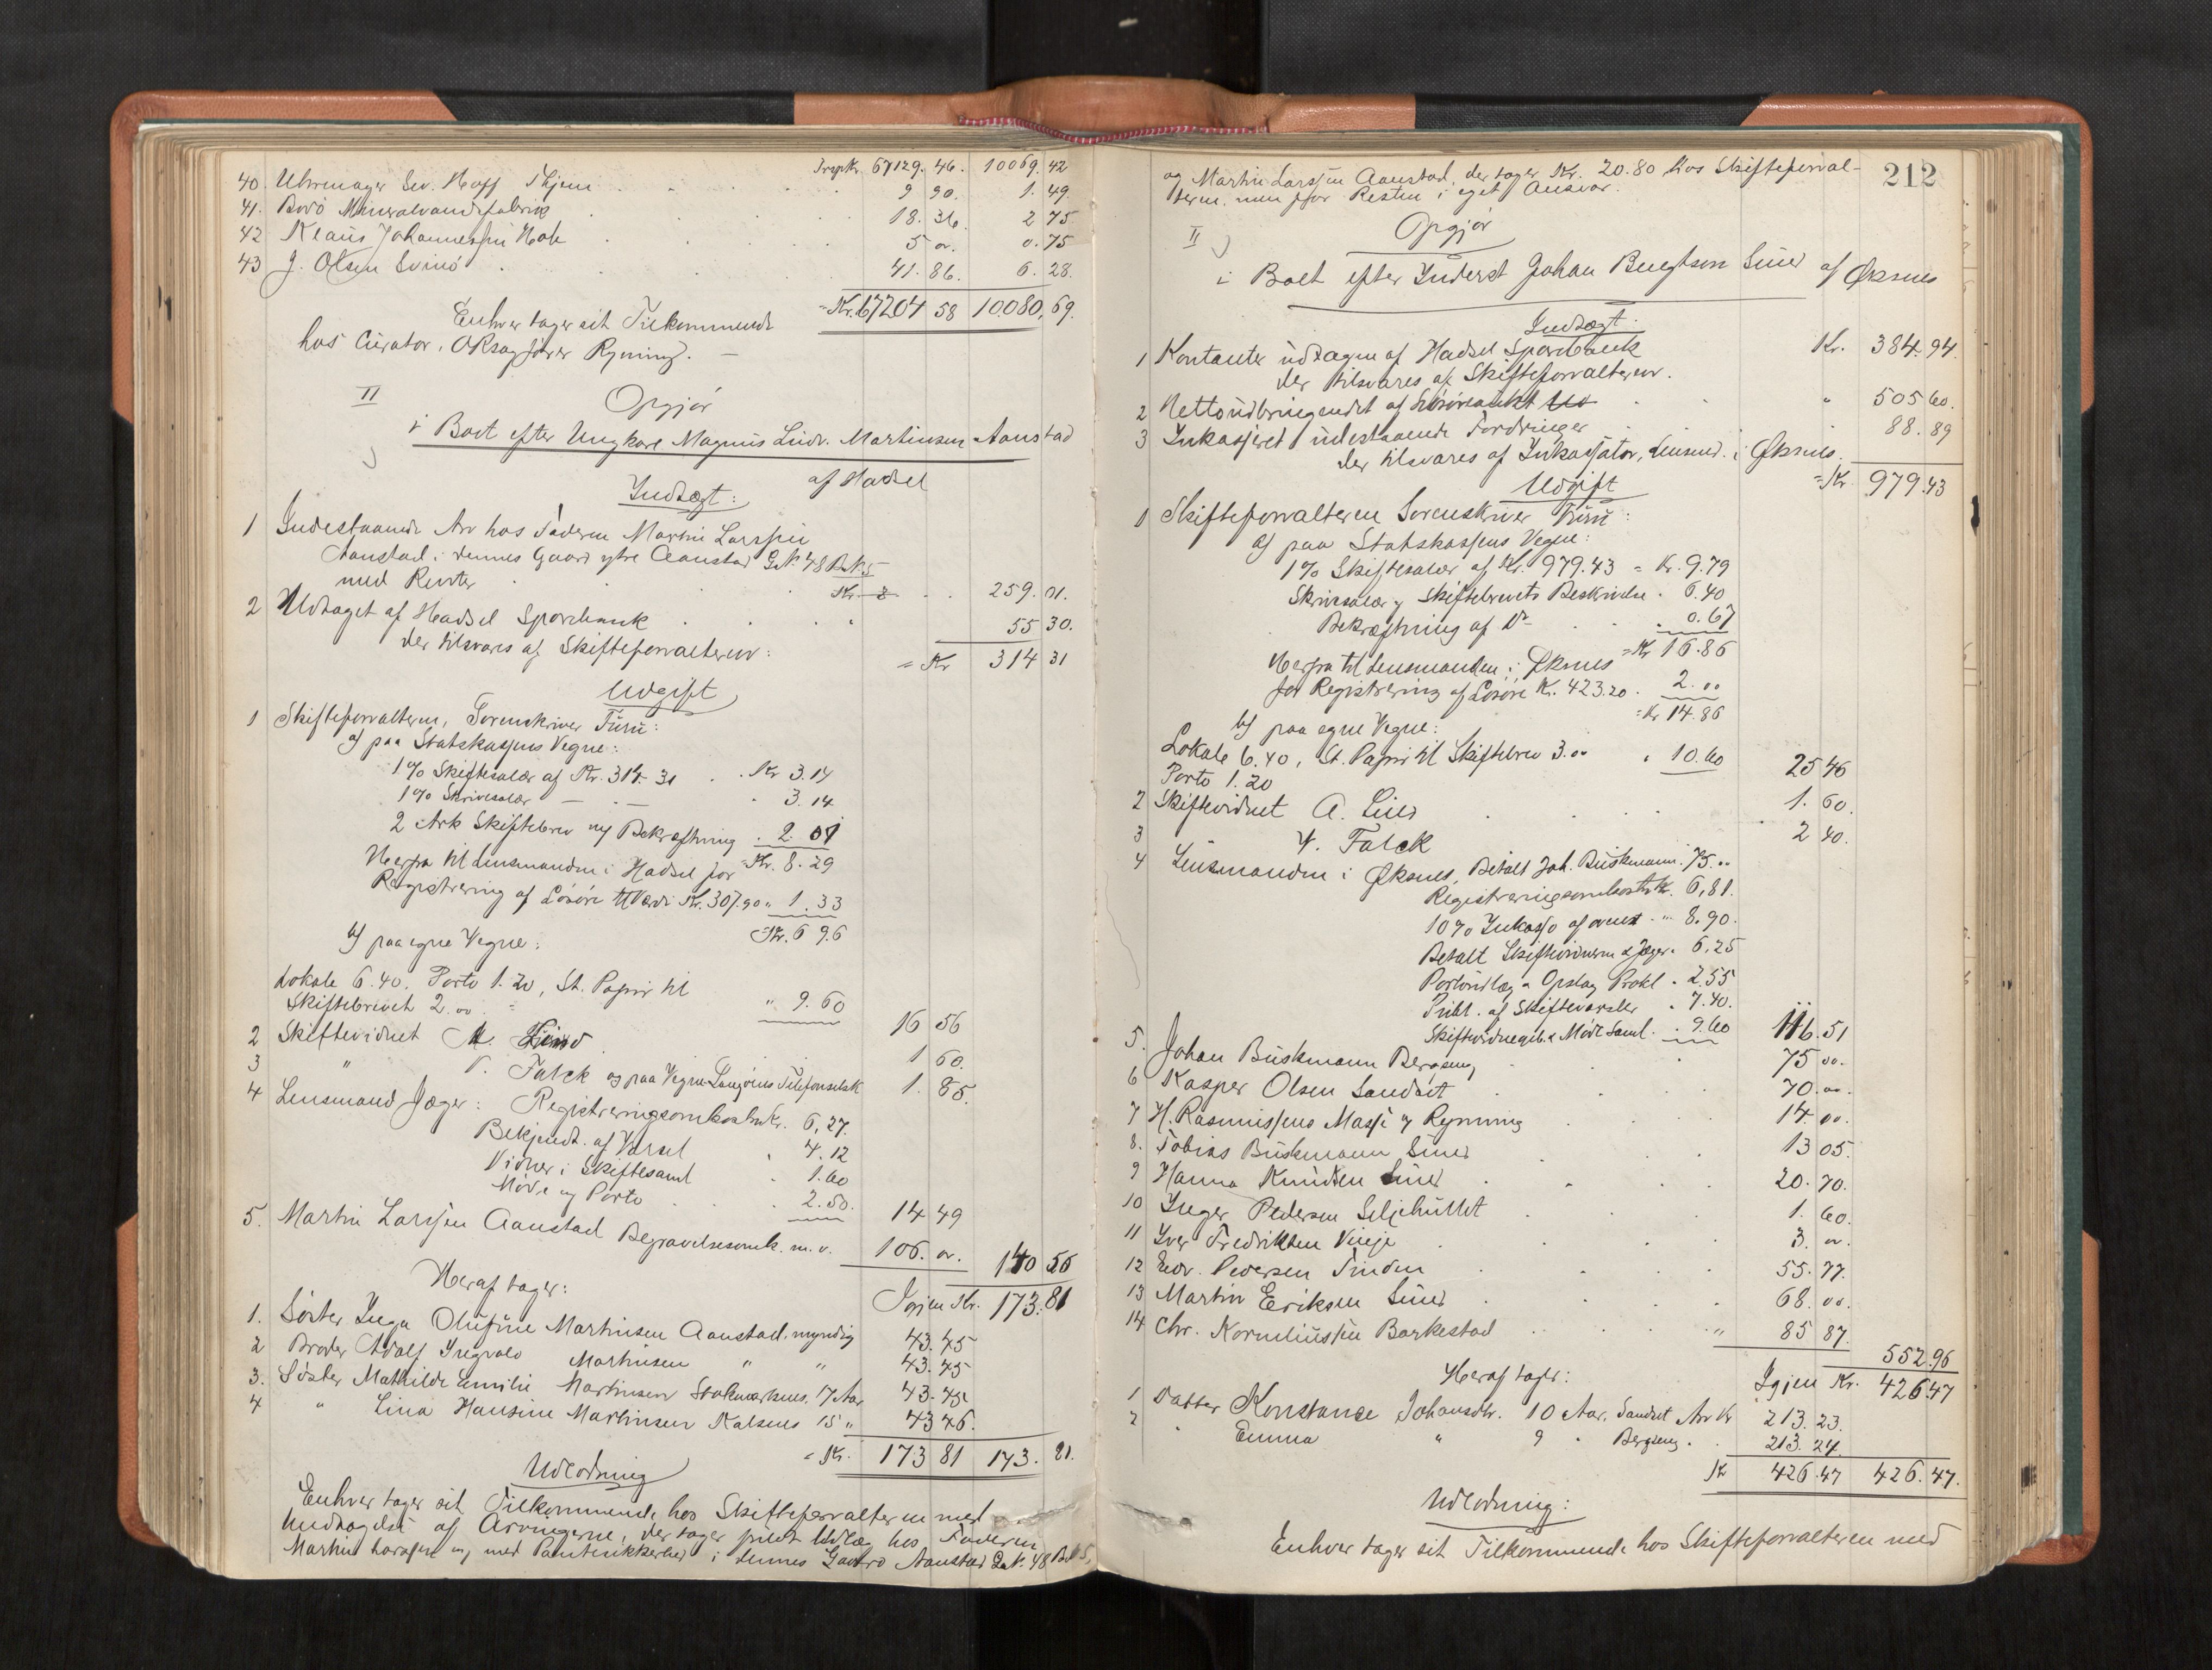 Trspk. 67129.46. 10069.42
40. Uhrmager Sev. Hoff Skjern . . . 9 90. 1. 49.
41. Bodö Mineralvandsfabrik . . . 18. 36. 2 75
42 Klaus Johannessen Hole . . . 5 oo. 0. 75
43 J. Olsen Svinö . . . 41. 86. 6. 28.
= Kr. 67204 58 10080,69.
Enhver tager sit Tilkommende
hos Curator, ORsagförer Rynning. —
II
Opgjör
i Boet efter Ungkarl Magnus Ludv. Martinsen Aanstad
af Hadsel
Indtægt:
1 Indestaaende Arv hos Faderen Martin Larssen
Aanstad i dennes Gaard ytre Aanstad G.N. 48 B.N. 5
med Renter . . . Kr. . . 259. 01.
2 Udtaget af Hadsel Sparebank . . . " 55 30.
der tilsvares af Skifteforvalteren: = Kr 314 31
Udgift
1 Skifteforvalteren, Sorenskriver Furu:
a) paa Statskassens Vegne:
1% Skiftesalær af Kr. 314. 31 . . Kr 3.14
1% Skrivesalær — — . 3.14
2 Ark Skiftebrev og Bekræftning . 2.01
= Kr. 8.29
Herfra til Lensmanden i Hadsel for
Registrering af Lösöre til Værdi Kr. 307.90 " 1.33
= Kr. 6 96
b) paa egne Vegne:
Lokale 6.40. Porto 1.20, St. Papir til
Skiftebrevet 2.oo = " 9.60 16 56
2 Skiftevidnet A. Lind . 1 60.
3 " V. Falck og paa Vegne Langöens Telefonselsk 1. 85.
4 Lensmand Jæger: Registreringsomkostn. Kr. 6,27.
Bekjendt. af Varsel . 4.12
Vidner i Skiftesaml . 1.60
Möde og Porto . . . 2.50. 14 49
5. Martin Larssen Aanstad Begravelsesomk. m. v. 106. oo. 140 50
Igjen Kr. 173.81
Heraf tager:
1. Söster Inga Olufine Martinsen Aanstad, myndig 43.45
2 Broder Adolf Ingvald Martinsen " " 43.45
3. Söster Mathilde Emilie Martinsen Stokmarknes, 17 Aar 43.45
4 " Lina Hansine Martinsen Kalsnes 15 " 43 46.
= Kr. 173 81 173. 81.
Udlodning
Enhver tager sit Tilkommende hos Skifteforvalteren med
Undtagelse af Arvingerne, der tager fuldt Udlæg hos Faderen
Martin Larssen og med Pantesikkerhed i dennes Gaard Aanstad G.N. 48 B.N. 5,
212
og Martin Larssen Aanstad, der tager Kr. 20.80 hos Skifteforval-
teren, men for Resten i eget Ansvar.
II
Opgjör
i Boet efter Inderst Johan Bengtson Sund af Öksnes
Indtægt.
1 Kontanter udtagen af Hadsel Sparebank Kr. 384.94
der tilsvares af Skifteforvalteren.
2 Nettoudbringendet af Lösöreaukt . . " 505 60.
3 Inkasseret i udestaaende Fordringer . . 88. 89
der tilsvares af Inkassator, Lensmd. i Öksnes.
= Kr 979.43
Udgift
1 Skifteforvalteren Sorenskriver Furu:
a) paa Statskassens Vegne:
1% Skiftesalær af Kr. 979.43 = Kr. 9.79
Skrivesalær og Skiftebrevets Beskrivelse . 6.40
Bekræftning af Do . . . 0.67
= Kr 16.86
Herfra til Lensmanden i Öksnes
for Registrering af Lösöre Kr. 423.20 . 2.oo
= Kr 14.86
b) paa egne Vegne:
Lokale 6.40, St. Papir til Skiftebrev 3.oo " 10.60 25 46
Porto 1.20
2 Skiftevidnet A. Lind . . . 1. 60.
3 V. Falck 2 40.
4 Lensmanden i Öksnes, Betalt Joh. Buskmann. 75.oo
Registreringsomkostn Kr. 6,81.
10% Inkasso af ovenst - " 8.90.
Betalt Skiftevidnerne & Jæger. 6.25
Portoudlæg & Opslag Prokl . 2.55
Publ. af Skiftevarsler . 7.40.
Skiftevidnegeb. & Möde Saml. . 9.60 116.51
5. Johan Buskmann Bergseng 75 oo.
6 Kasper Olsen Sandset . . . 70.oo.
7 H. Rasmussens Masse v/ Rynning . . 14. oo.
8. Tobias Buskmann Sund . . . 13 05.
9 Hanna Knudsen Sund . . . 20. 70.
10 Inger Pedersen Seljehullet . . . 1. 60.
11 Iver Fredriksen Vinje . . . 3. oo.
12 Edv. Pedersen Tinden . . . 55. 77.
13 Martin Eriksen Sund . . . 68. oo.
14 Chr. Korneliussen Barkestad . . . " 85 87.
552.96
Heraf tager: Igjen Kr. 426.47
1 Datter Konstanse Johansdtr. 10 Aar, Sandset Arv Kr 213. 23.
2 " Emma " 9 " Bergseng . 213. 24.
Kr 426.47 426.47.
Udlodning:
Enhver tager sit Tilkommende hos Skifteforvalteren med